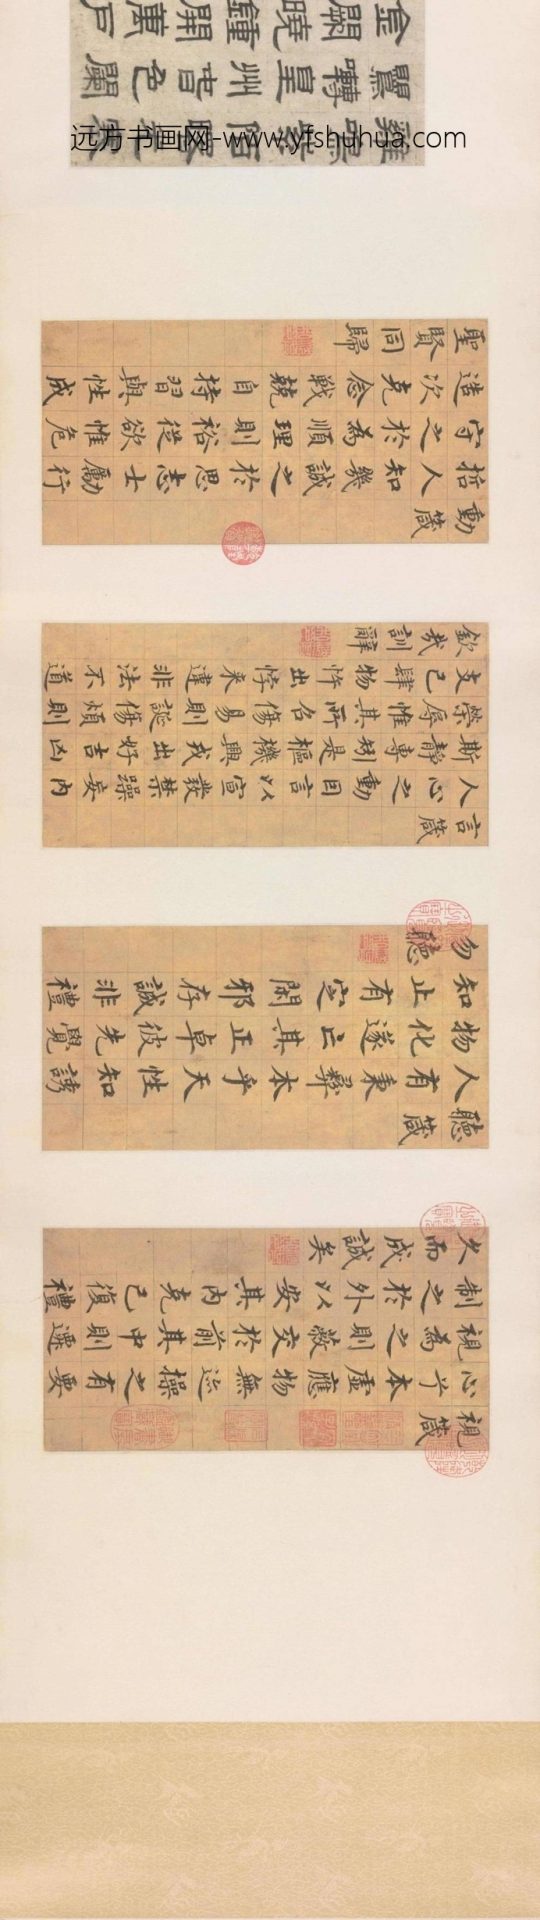 視箴
心兮本虛應物無迹操之有要
視為之則蔽交於前其中則遷
制之於外以安其內克己復禮
久而成誠矣
聽箴
人有秉彝本乎天性知誘
物化遂亡其正卓彼先覺
知止有定閑邪存誠非禮
勿聽
言箴
人心之動因言以宣發禁躁妄內
斯靜專矧是樞機興戎出好吉凶
榮辱惟其所召傷易則誕傷煩則
支己肆物忤出悖來違非法不道
欽哉訓辭
動箴
哲人知幾誠之於思志士勵行
守之於為順理則裕從欲惟危
造次克念戰兢自持習與性成
聖賢同歸
雞鳴紫陌
鶯囀皇州春色闌
金闕曉鐘開萬戶
远方书画网-www.yfshuhua.com